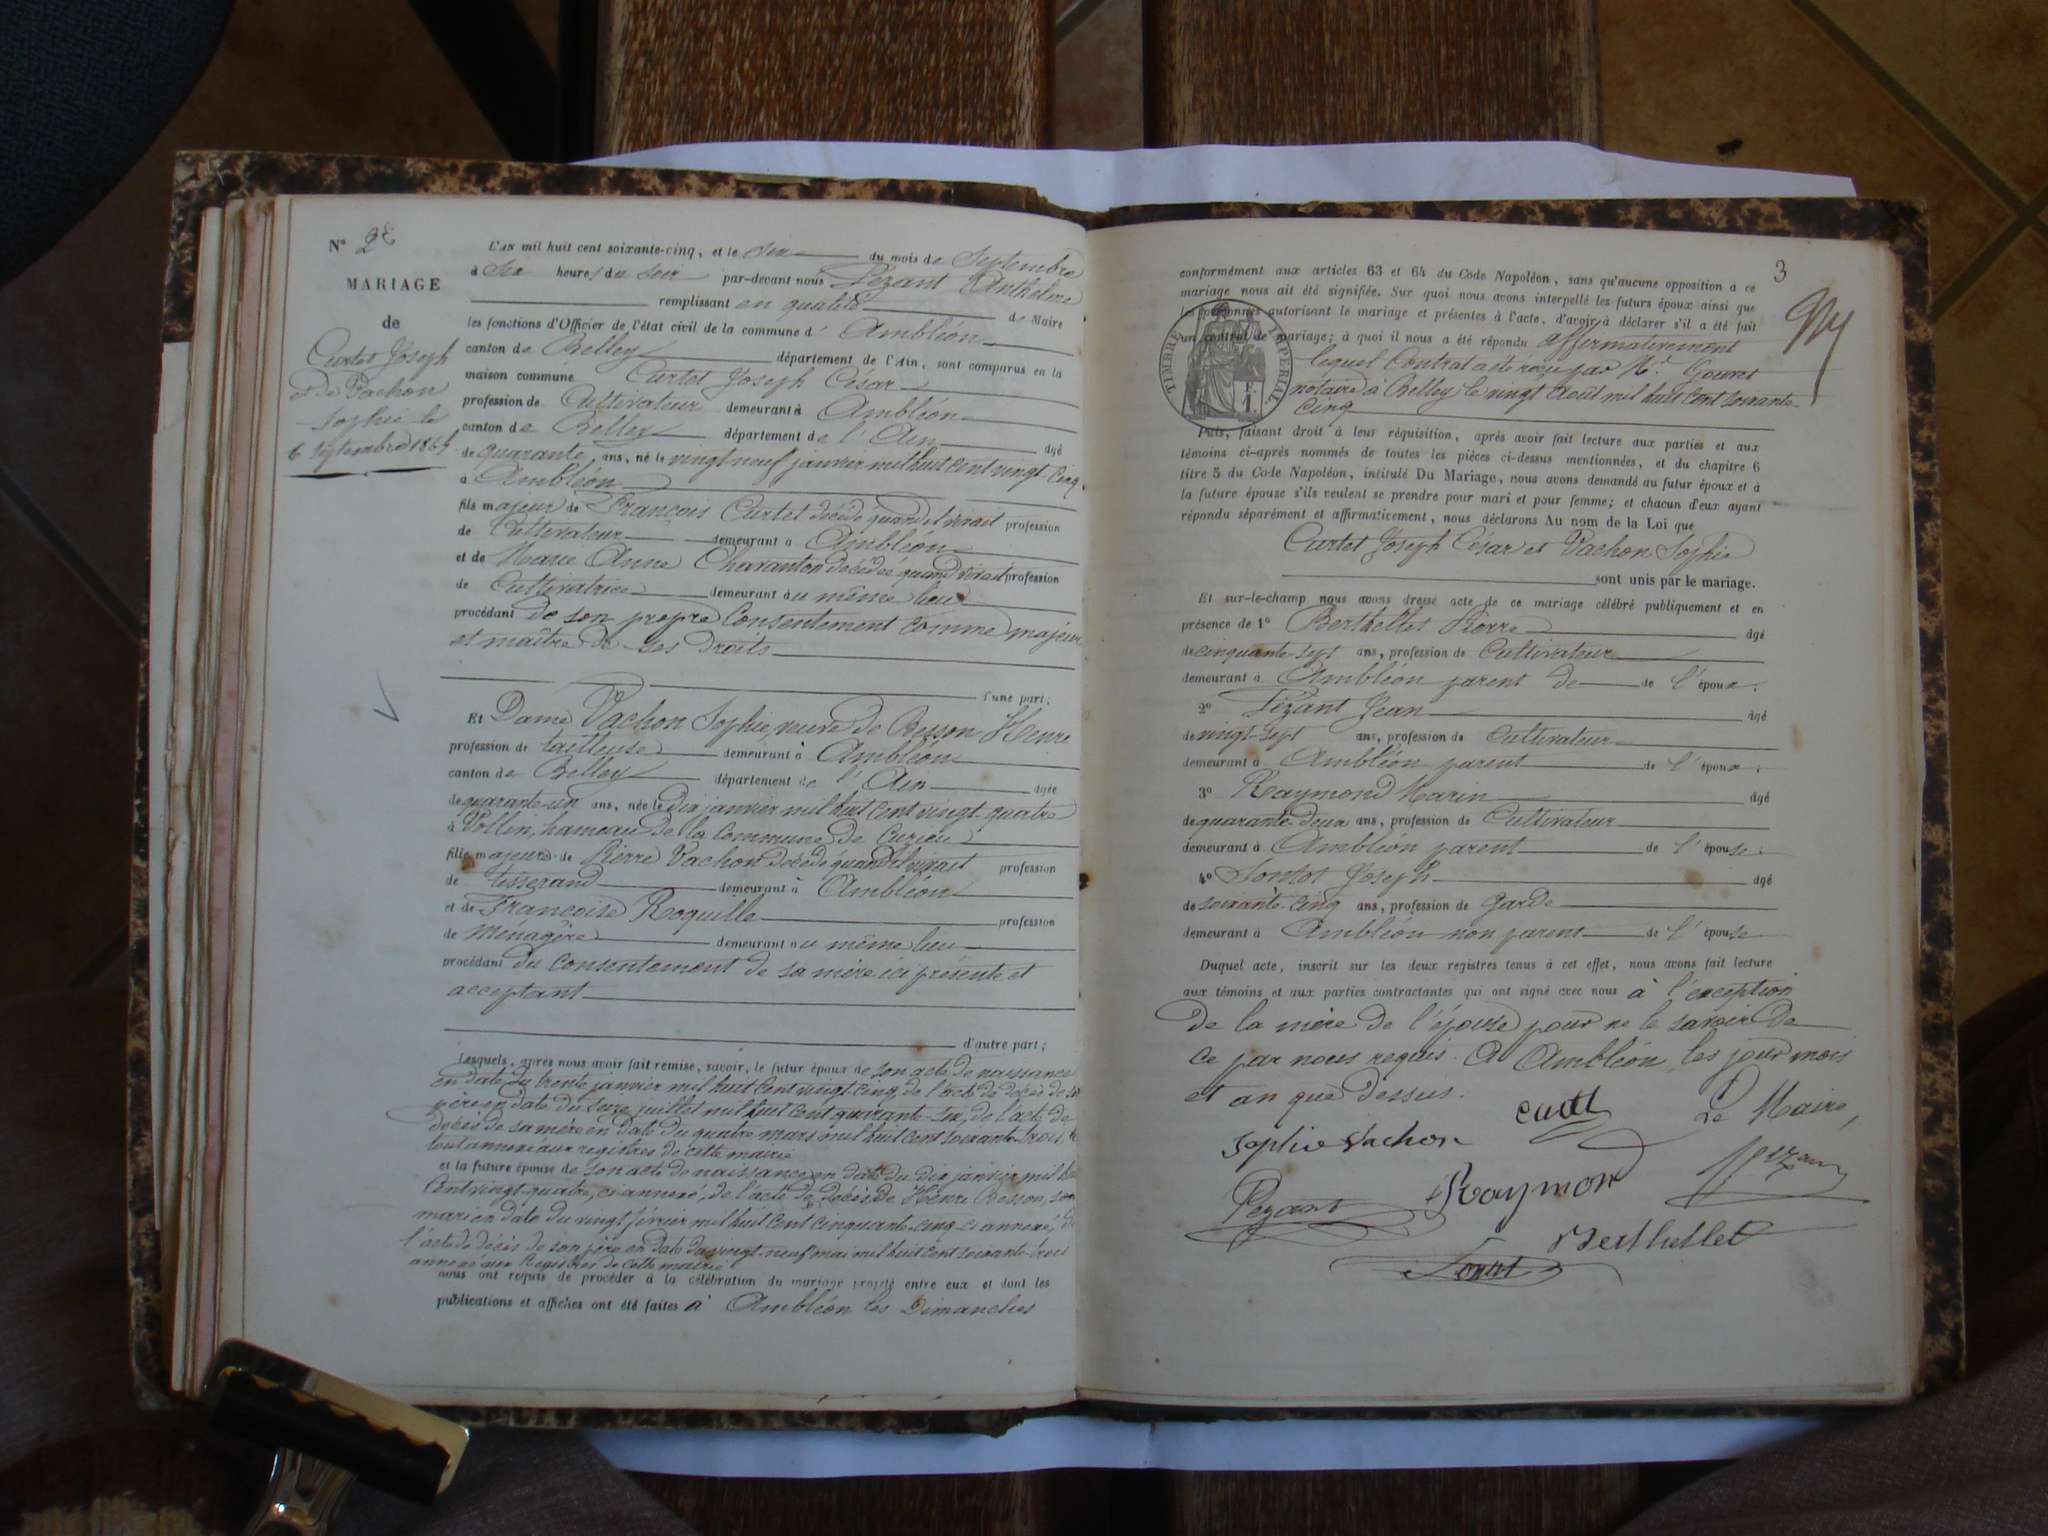 N° 2e
MARIAGE
de
Curtet Joseph
et de Vachon
Sophie le
6 Septembre 1865
L'AN mil huit cent soixante-cinq, et le six du mois de Septembre
à Six heures du soir par-devant nous Pézant Anthelme
remplissant en qualité de Maire
les fonctions d'Officier de l'état civil de la commune d' Ambléon
canton de Belley département de l'Ain, sont comparus en la
maison commune Curtet Joseph César
profession de Cultivateur demeurant à Ambléon
canton de Belley département de l'Ain âgé
de quarante ans, né le vingt-neuf janvier mil huit cent vingt-cinq
à Ambléon
fils majeur de François Curtet décédé quand il vivait profession
de Cultivateur demeurant à Ambléon
et de Marie Anne Charanton décédée quand vivait profession
de Cultivatrice demeurant au même lieu
procédant de son propre Consentement comme majeur
et maître de ses droits
d'une part.
Et Dame Vachon Sophie, veuve de Besson Henri
profession de tailleuse demeurant à Ambléon
canton de Belley département de l'Ain âgée
de quarante-un ans, née le Dix janvier mil huit cent vingt-quatre
à Vollin, hameau de la Commune de Cuzieu
fille majeure de Pierre Vachon décédé quand il vivait profession
de tisserand demeurant à Ambléon
et de Françoise Roquille profession
de Menagère demeurant au même lieu
procédant du consentement de sa mère ici présente et
acceptant
d'autre part;
Lesquels, après nous avoir fait remise, savoir, le futur époux de son acte de naissance
en date du trente janvier mil huit cent vingt-cinq, de l'acte de décès de son
père en date du seize juillet mil huit cent quarante-six, de l'acte de
décès de sa mère en date du quatre mars mil huit cent soixante-trois, le
tout annexé aux registres de cette mairie
et la future épouse de son acte de naissance en date du dix janvier mil huit
Cent vingt-quatre, ci annexé, de l'acte de décès de Henri Besson, son
mari en date du vingt février mil huit cent cinquante-cinq ci annexé, de
l'acte de décès de son père en date du vingt-neuf mai mil huit cent soixante-trois
annexé aux Registres de cette mairie
nous ont requis de procéder à la célébration du mariage projeté entre eux et dont les
publications et affiches ont été faites à Ambléon les Dimanches
3
conformément aux articles 63 et 64 du Code Napoléon, sans qu'aucune opposition a ce
mariage nous ait été signifiée. Sur quoi nous avons interpellé les futurs époux ainsi que
les personnes autorisant le mariage et présentes à l'acte, d'avoir à déclarer s'il a été fait
un contrat de mariage; à quoi il nous a été répondu affirmativement
lequel Contrat a été reçu par Me. Gouret
notaire à Belley le vingt Août mil huit cent soixante-
cinq
TIMBRE IMPERIAL
Puis, faisant droit à leur réquisition, après avoir fait lecture aux parties et aux
témoins ci-après nommés de toutes les pièces ci-dessus mentionnées, et du chapitre 6
titre 5 du Code Napoléon, intitulé Du Mariage, nous avons demandé au futur époux et à
la future épouse s'ils veulent se prendre pour mari et pour femme; et chacun d'eux ayant
répondu séparément et affirmativement, nous déclarons Au nom de la Loi que
Curtet Joseph César et Vachon Sophie
sont unis par le mariage.
Et sur-le-champ nous avons dressé acte de ce mariage célébré publiquement et en
présence de 1° Berthellet Pierre âgé
de cinquante-sept ans, profession de Cultivateur
demeurant à Ambléon parent de de l'époux.
2° Pézant Jean âgé
de vingt-sept ans, profession de Cultivateur
demeurant à Ambléon parent de l'époux.
3° Raymond Marin âgé
de quarante-deux ans, profession de Cultivateur
demeurant à Ambléon parent de l'épouse.
4° Joseph âgé
de soixante-cinq ans, profession de Garde
demeurant à Ambléon non parent de l'épouse
Duquel acte, inscrit sur les deux registres tenus à cet effet, nous avons fait lecture
aux témoins et aux parties contractantes qui ont signé avec nous à l'exception
de la mère de l'épouse pour ne le savoir de
ce par nous requis. A Ambléon, les jour mois
et an que dessus.
Sophie Vachon Curtet Le Maire,
Pezant Raymond Pezant
Berthellet